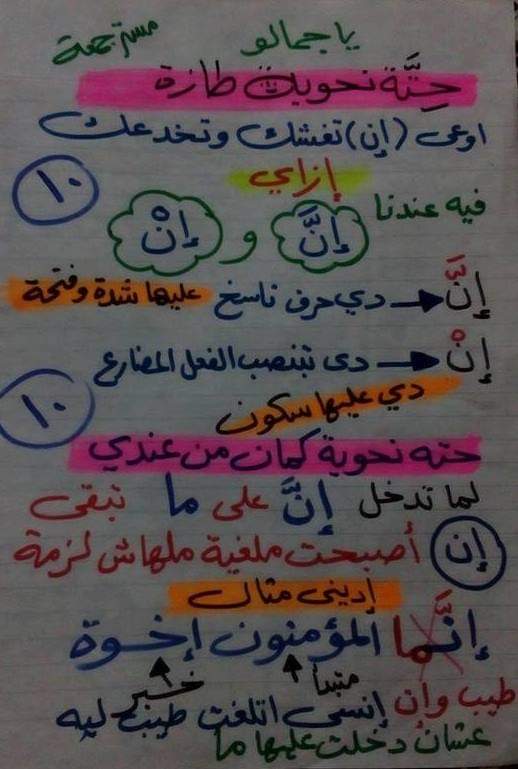 يا جمالو مسترجمعة
حِتَّة نحوية طازة
اوعى (إن) تغشك وتخدعك
إزاي
١٠
فيه عندنا إنَّ و إنْ
إنَّ ← دي حرف ناسخ عليها شدة وفتحة
إنْ ← دى تبنصب الفعل المضارع
دي عليها سكون
١٠
حته نحوية كمان من عندي
لما تدخل إنَّ على ما تبقى
إن أصبحت ملغية ملهاش لزمة
إدينى مثال
إنَّما المؤمنون إخوة
مبتدأ خبر
طيب وإن إنسى اتلغت طيب ليه
عشان دخلت عليها ما